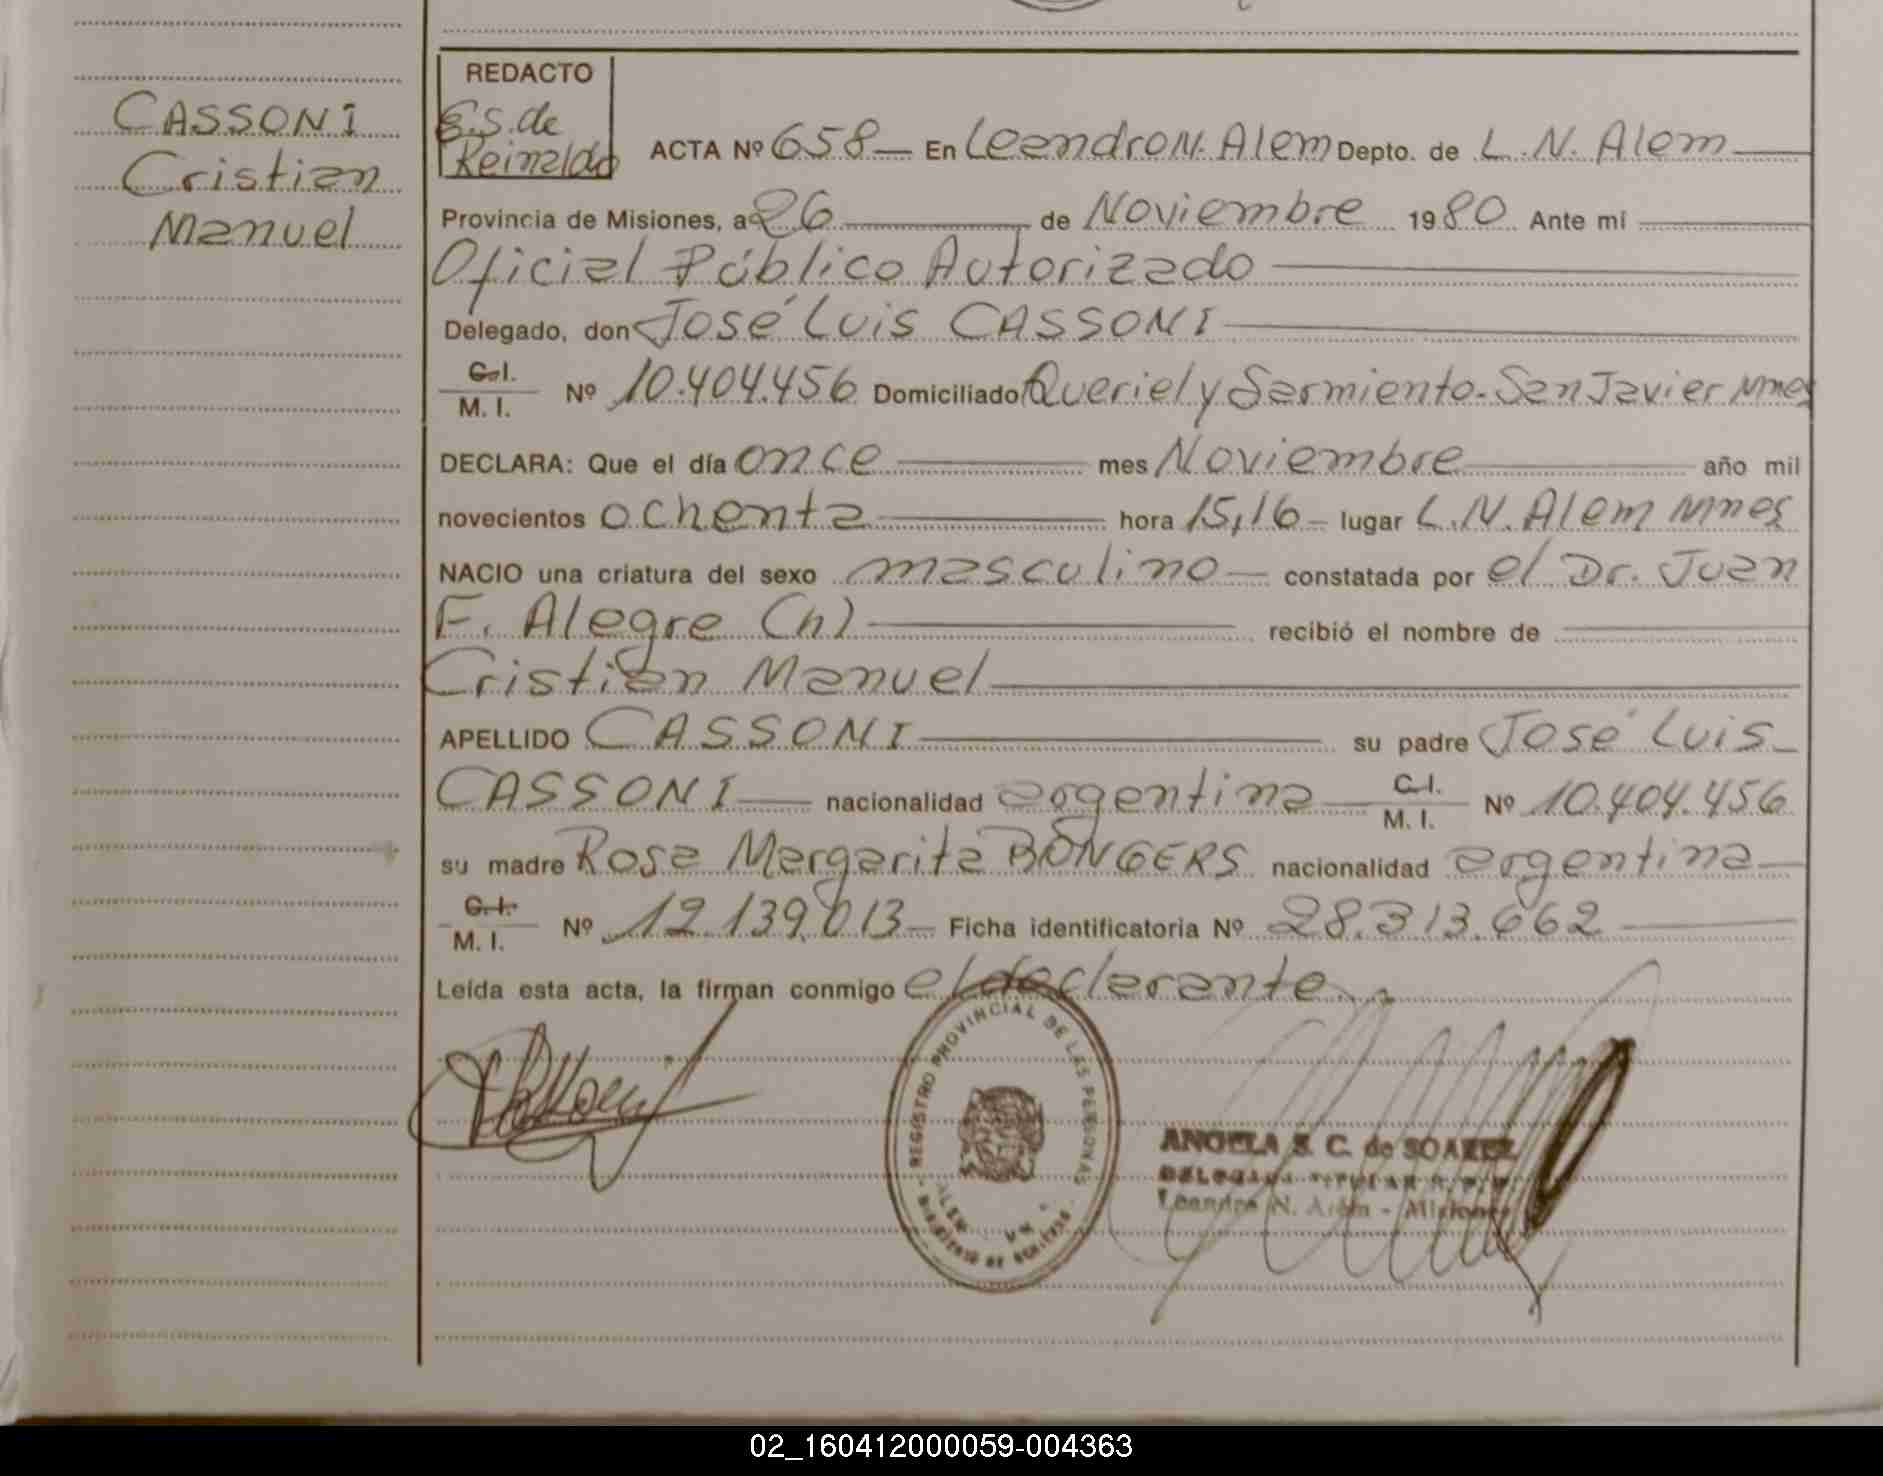 CASSONI
Cristian
Manuel
REDACTO
E.S. de
Reinaldo
ACTA Nº 658 En Leandro N. Alem Depto. de L. N. Alem
Provincia de Misiones, a 26 de Noviembre 1980 Ante mí
Oficial Público Autorizado
Delegado, don José Luis CASSONI
C.I.
M. I. Nº 10.404.456 Domiciliado Queriel y Sarmiento. San Javier Mnes
DECLARA: Que el día once mes Noviembre año mil
novecientos ochenta hora 15,16 lugar L. N. Alem Mnes
NACIO una criatura del sexo masculino constatada por el Dr. Juan
F. Alegre (h) recibió el nombre de
Cristian Manuel
APELLIDO CASSONI su padre José Luis
CASSONI nacionalidad argentina C.I. M. I. Nº 10.404.456
su madre Rosa Margarita BONGERS nacionalidad argentina
C.I.
M. I. Nº 12.139.013 Ficha identificatoria Nº 28.313.662
Leída esta acta, la firman conmigo el declarante.
REGISTRO PROVINCIAL DE LAS PERSONAS
ANGELA S. C. de SOAREZ
DELEGADA TITULAR R. P. P.
Leandro N. Alem - Misiones
02_160412000059-004363